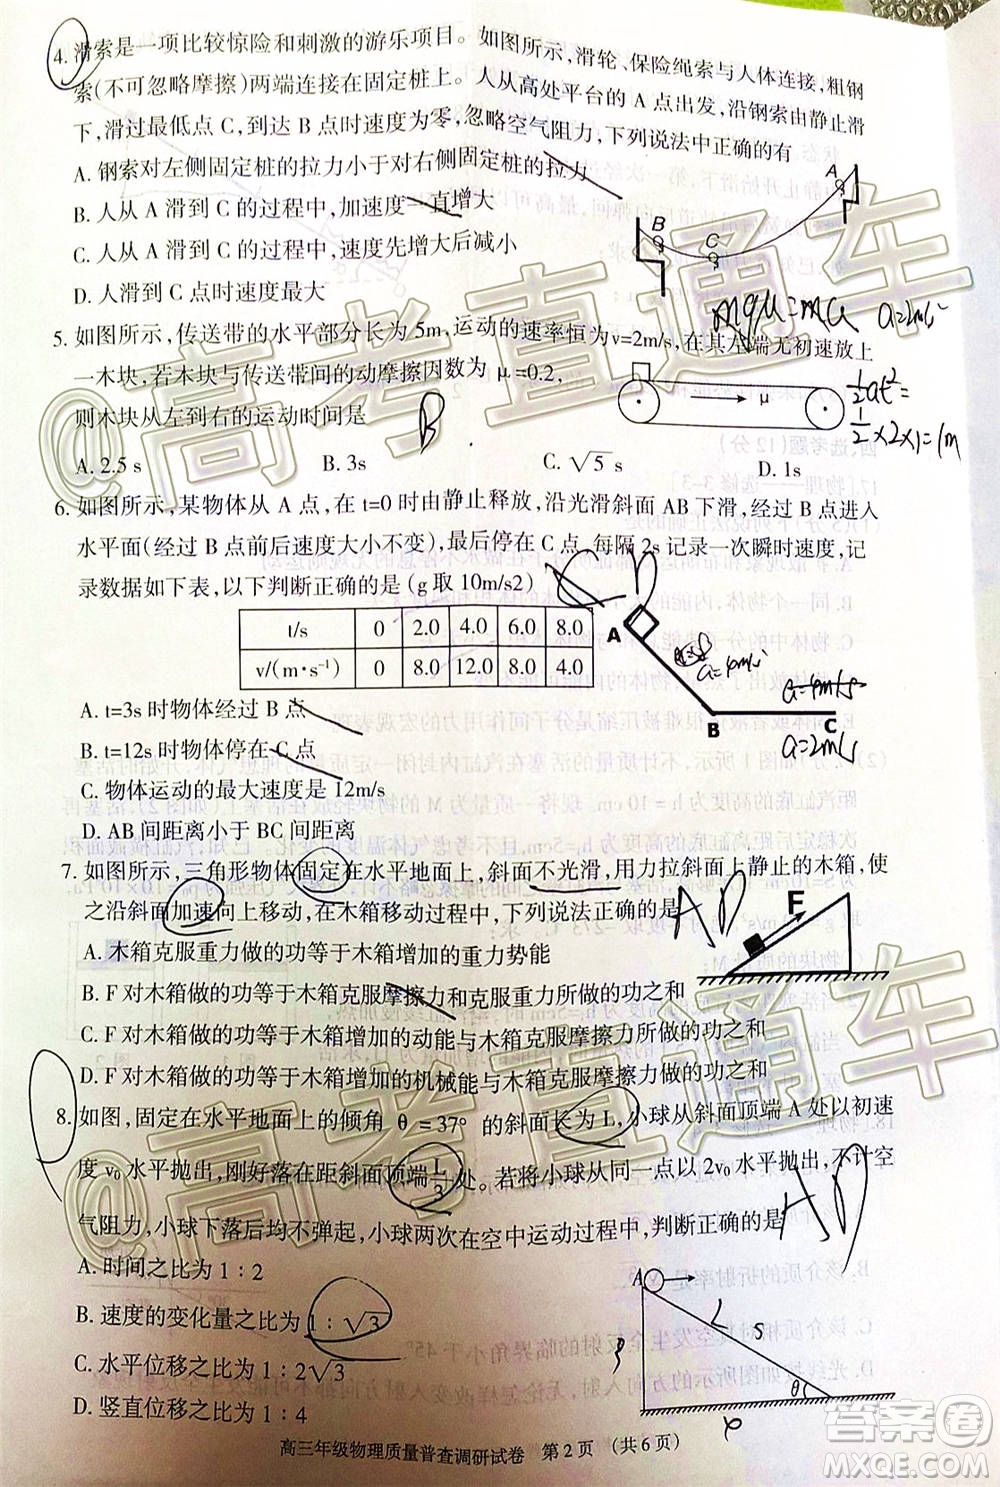 4. 滑索是一项比较惊险和刺激的游乐项目。如图所示,滑轮、保险绳索与人体连接,粗钢
索(不可忽略摩擦)两端连接在固定桩上。人从高处平台的 A 点出发,沿钢索由静止滑
下,滑过最低点 C,到达 B 点时速度为零,忽略空气阻力,下列说法中正确的有
A. 钢索对左侧固定桩的拉力小于对右侧固定桩的拉力
B. 人从 A 滑到 C 的过程中,加速度一直增大
C. 人从 A 滑到 C 的过程中,速度先增大后减小
D. 人滑到 C 点时速度最大
A
B
C
mgμ=ma a=2m/s
5. 如图所示,传送带的水平部分长为 5m,运动的速率恒为v=2m/s,在其左端无初速放上
一木块,若木块与传送带间的动摩擦因数为 μ=0.2,
则木块从左到右的运动时间是 B
μ
½at²=
½×2×1=1m
A. 2.5 s B. 3s C. √5 s D. 1s
6. 如图所示,某物体从 A 点,在 t=0 时由静止释放,沿光滑斜面 AB 下滑,经过 B 点进入
水平面(经过 B 点前后速度大小不变),最后停在 C 点。每隔 2s 记录一次瞬时速度,记
录数据如下表,以下判断正确的是 (g 取 10m/s2) CD
t/s 0 2.0 4.0 6.0 8.0
v/(m·s⁻¹) 0 8.0 12.0 8.0 4.0
A
B
C
a=4m/s
a=4m/s
a=2m/s
A. t=3s 时物体经过 B 点
B. t=12s 时物体停在 C 点
C. 物体运动的最大速度是 12m/s
D. AB 间距离小于 BC 间距离
7. 如图所示,三角形物体固定在水平地面上,斜面不光滑,用力拉斜面上静止的木箱,使
之沿斜面加速向上移动,在木箱移动过程中,下列说法正确的是 AD
F
A. 木箱克服重力做的功等于木箱增加的重力势能
B. F 对木箱做的功等于木箱克服摩擦力和克服重力所做的功之和
C. F 对木箱做的功等于木箱增加的动能与木箱克服摩擦力所做的功之和
D. F 对木箱做的功等于木箱增加的机械能与木箱克服摩擦力做的功之和
8. 如图,固定在水平地面上的倾角 θ=37° 的斜面长为 L,小球从斜面顶端 A 处以初速
度 v₀ 水平抛出,刚好落在距斜面顶端 L/3 处。若将小球从同一点以 2v₀ 水平抛出,不计空
气阻力,小球下落后均不弹起,小球两次在空中运动过程中,判断正确的是 AD
A. 时间之比为 1∶2
B. 速度的变化量之比为 1∶√3
C. 水平位移之比为 1∶2√3
D. 竖直位移之比为 1∶4
A
L
5
3
θ
高三年级物理质量普查调研试卷 第 2 页 (共 6 页)
@高考直通车
@高考直通车
答案圈
MXQE.COM